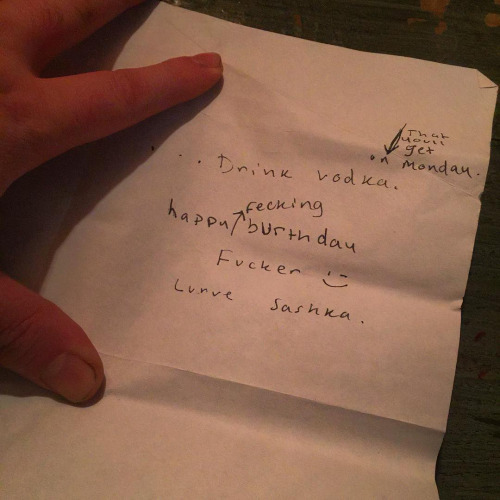 That
youll
get
on Monday.
... Drink vodka.
fecking
happy burthday
Fucker :-)
Lurve Sashka.